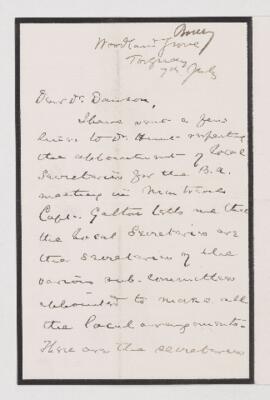 Bonney
Woodland Grove
Torquay
7th July
Dear Dr. Dawson,
I have sent a few
lines to Dr. Hunt respecting
the appointment of local
Secretaries for the B.A.
meeting in Montreal
Capt. Galton tells me that
the local Secretaries are
the secretaries of the
various sub-committees
appointed to make all
the local arrangements.
These are the secretaries